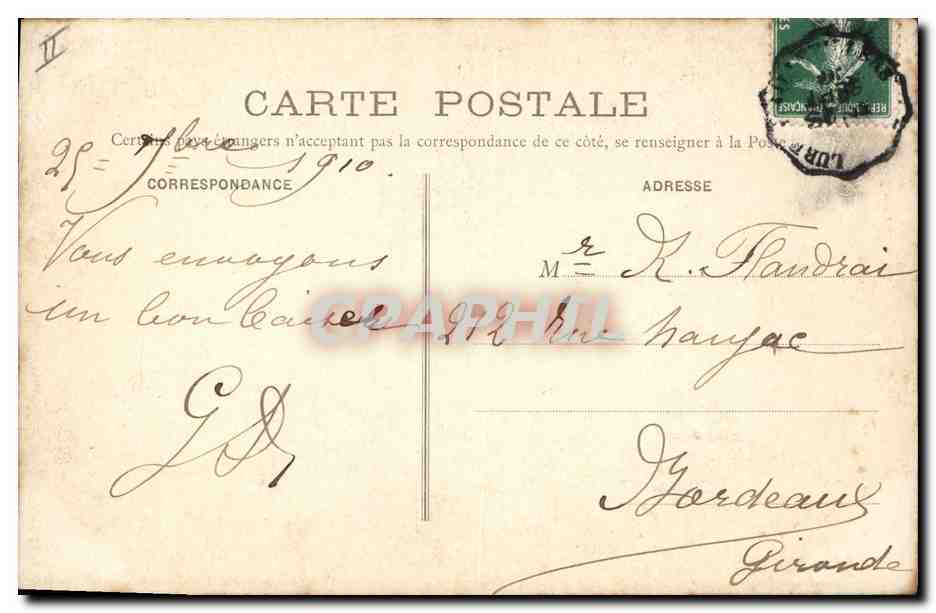 II
CARTE POSTALE
Certains pays étrangers n'acceptant pas la correspondance de ce côté, se renseigner à la Poste
25 = 7bre 1910.
CORRESPONDANCE
Vous envoyons
un bon baiser
GD
ADRESSE
Mr K. Flandrai
212 Rue Naujac
Bordeaux
Gironde
CPAPHIL